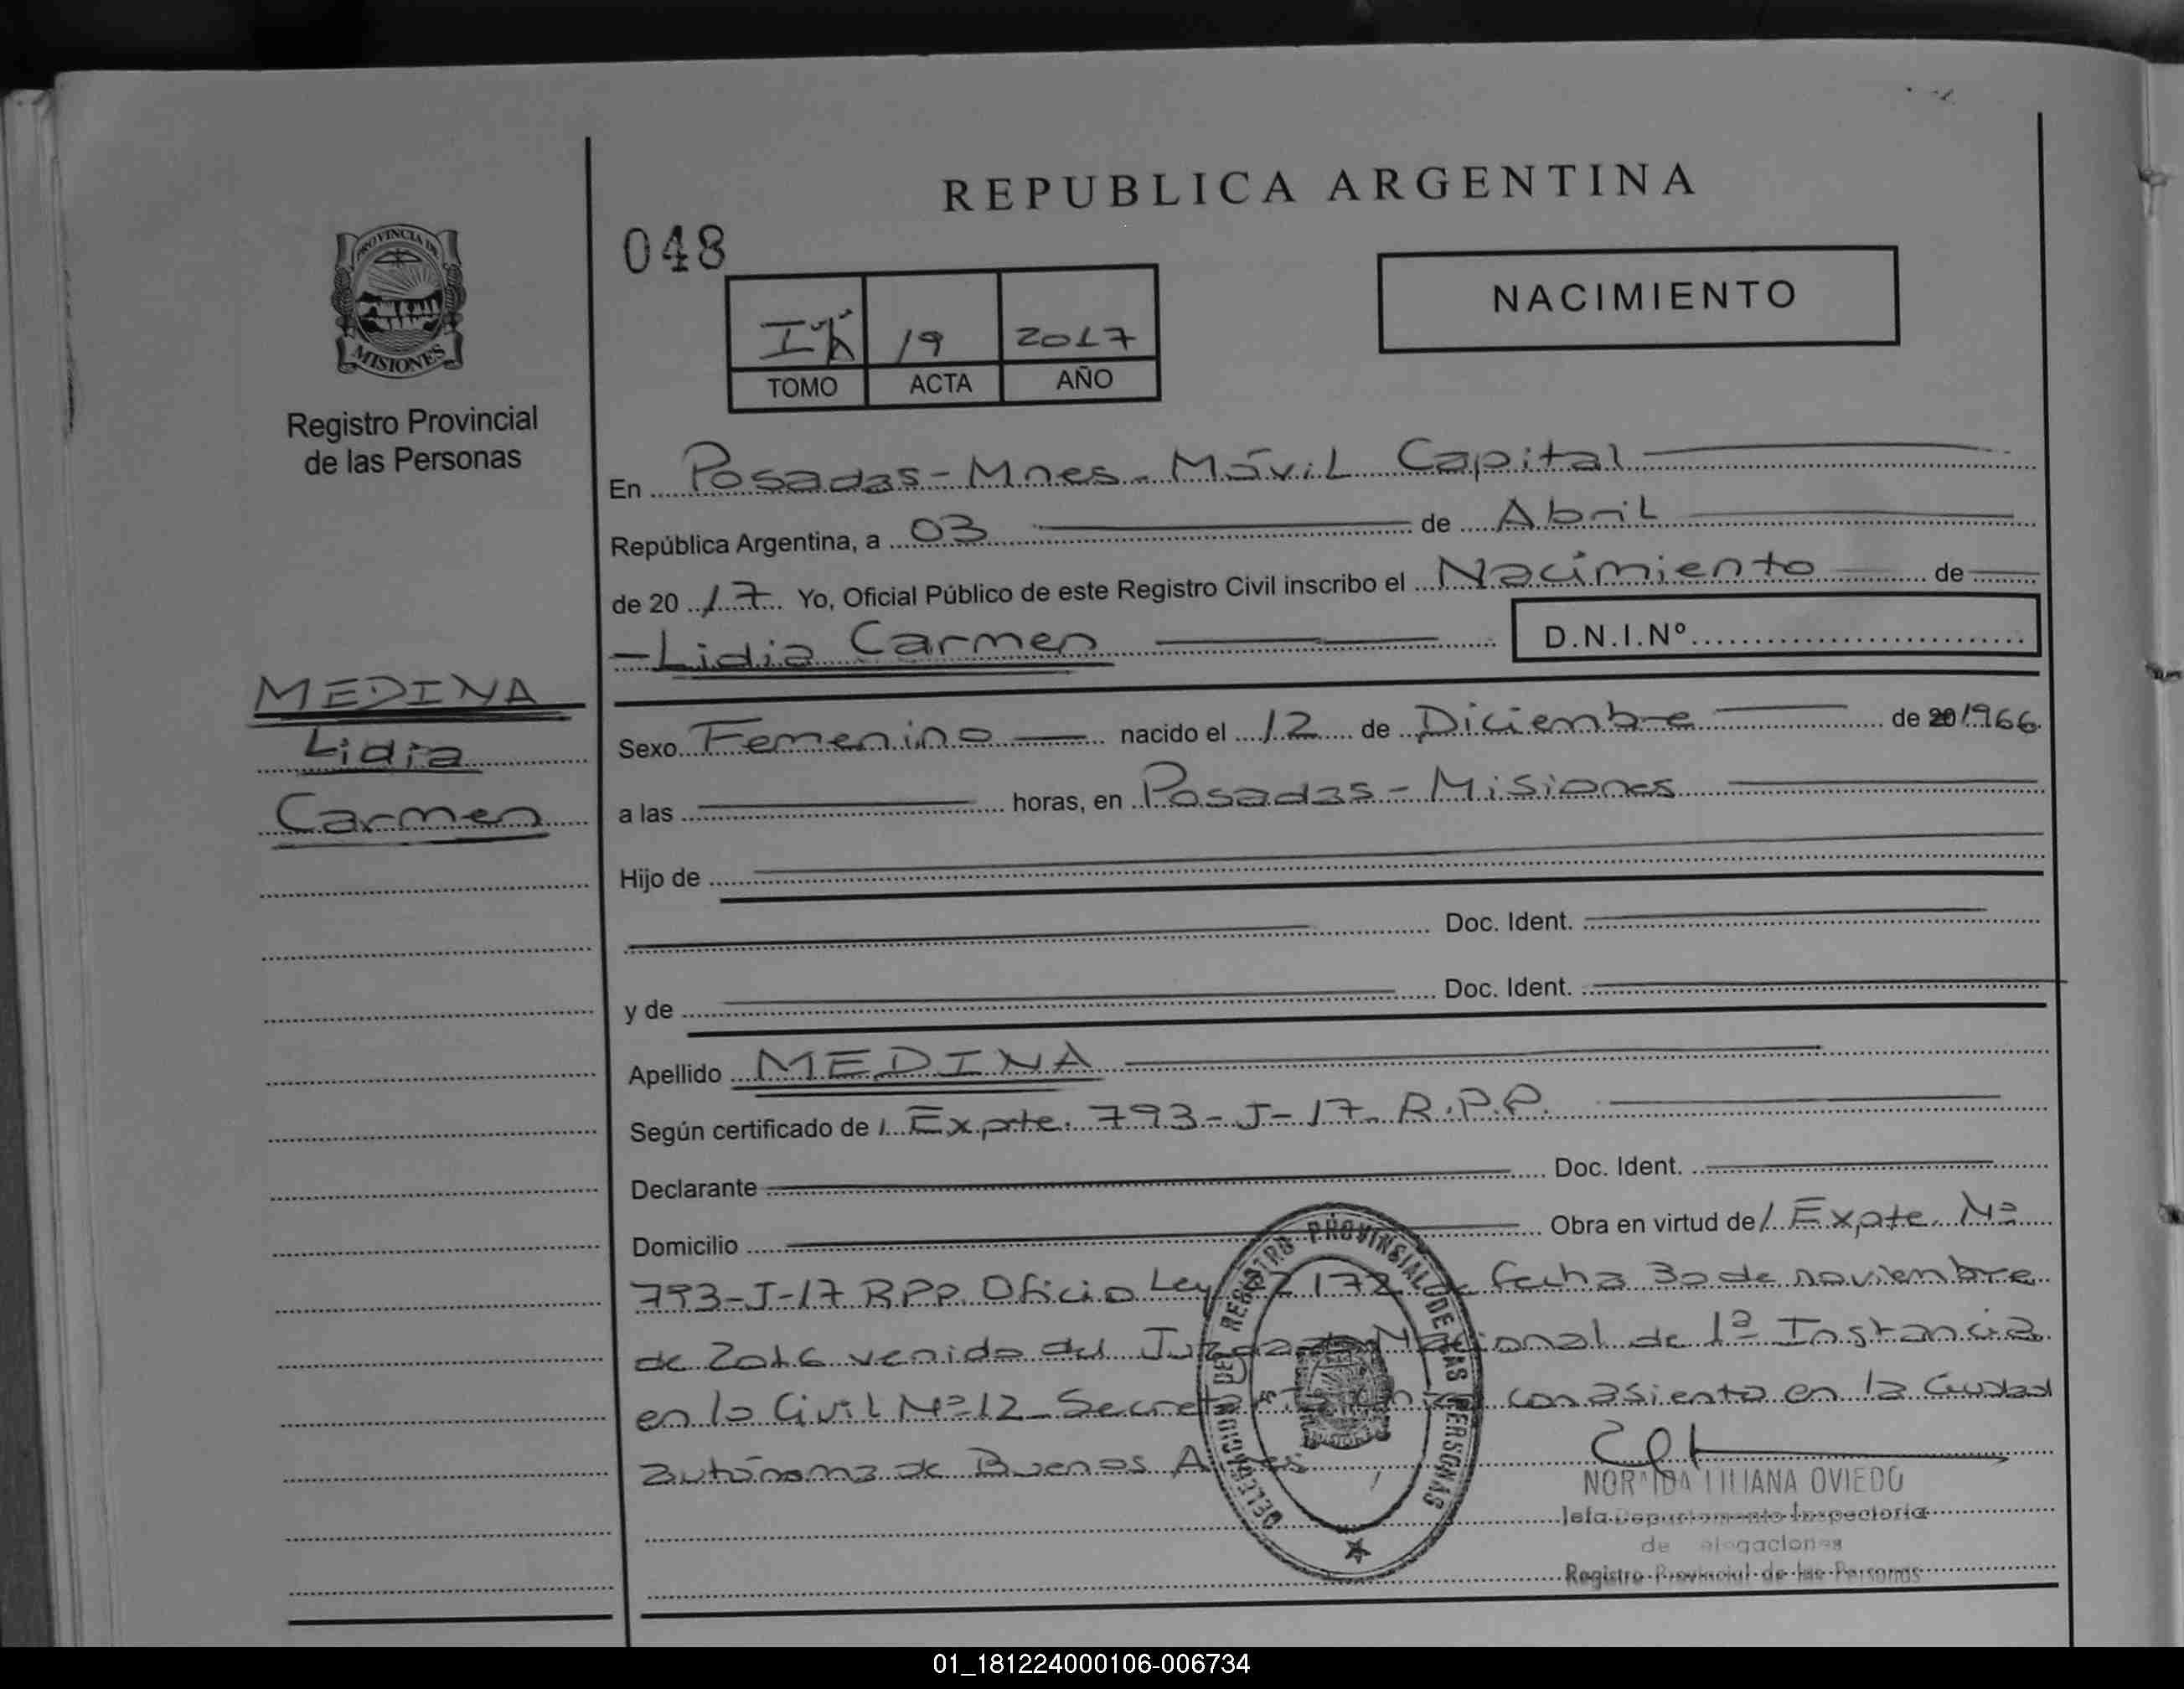 REPUBLICA ARGENTINA
PROVINCIA DE
MISIONES
Registro Provincial
de las Personas
048
19 2017
TOMO ACTA AÑO
NACIMIENTO
En Posadas - Mnes - Móvil Capital
República Argentina, a 03 de Abril
de 2017 Yo, Oficial Público de este Registro Civil inscribo el Nacimiento de
- Lidia Carmen
D.N.I.Nº
MEDINA
Lidia
Carmen
Sexo Femenino nacido el 12 de Diciembre de 1966
a las horas, en Posadas - Misiones
Hijo de
Doc. Ident.
y de Doc. Ident.
Apellido MEDINA
Según certificado de / Expte. 793-J-17- R.P.P.
Declarante Doc. Ident.
Domicilio Obra en virtud de / Expte. Nº
793-J-17 RPP. Oficio Ley 172 fecha 30 de noviembre
de 2016 venido del Juzgado Nacional de 1ª Instancia
en lo Civil Nº 12 - Secretaría con asiento en la Ciudad
autónoma de Buenos Aires
DELEGACION DEL REGISTRO PROVINSIAL DE LAS PERSONAS
LILIANA OVIEDO
Jefa Departamento Inspectoria
de
Registro Provincial de las Personas
01_181224000106-006734